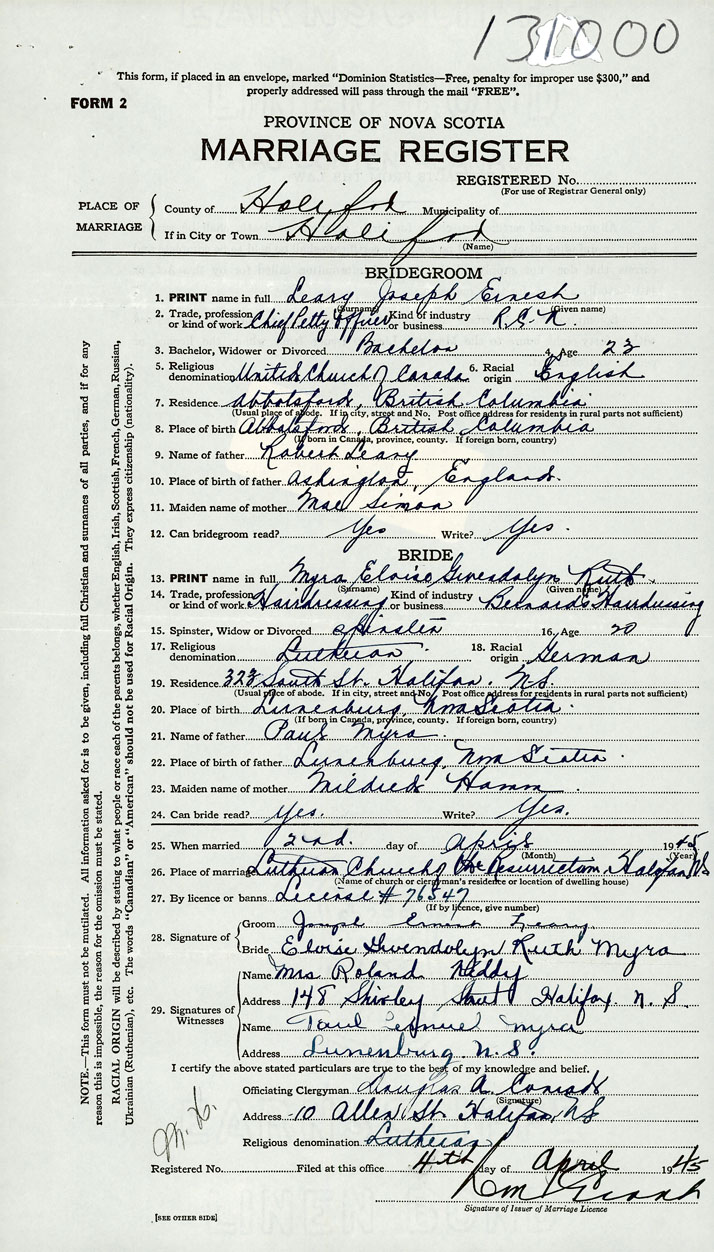 131000
This form, if placed in an envelope, marked "Dominion Statistics—Free, penalty for improper use $300," and
properly addressed will pass through the mail "FREE".
FORM 2
PROVINCE OF NOVA SCOTIA
MARRIAGE REGISTER
REGISTERED No.
(For use of Registrar General only)
PLACE OF MARRIAGE
County of Halifax Municipality of
If in City or Town Halifax
(Name)
BRIDEGROOM
1. PRINT name in full Leary Joseph Ernest
(Surname) (Given name)
2. Trade, profession or kind of work Chief Petty Officer Kind of industry or business R.C.N.
3. Bachelor, Widower or Divorced Bachelor 4. Age 23
5. Religious denomination United Church of Canada 6. Racial origin English
7. Residence Abbotsford, British Columbia
(Usual place of abode. If in city, street and No. Post office address for residents in rural parts not sufficient)
8. Place of birth Abbotsford, British Columbia
(If born in Canada, province, county. If foreign born, country)
9. Name of father Robert Leary
10. Place of birth of father Ashington, England.
11. Maiden name of mother Mae Simon
12. Can bridegroom read? Yes Write? Yes.
BRIDE
13. PRINT name in full Myra Eloise Gwendolyn Ruth.
(Surname) (Given name)
14. Trade, profession or kind of work Hairdressing Kind of industry or business Bernard's Hairdressing
15. Spinster, Widow or Divorced Spinster 16. Age 20
17. Religious denomination Lutheran. 18. Racial origin German
19. Residence 323 South St. Halifax. N.S.
(Usual place of abode. If in city, street and No. Post office address for residents in rural parts not sufficient)
20. Place of birth Lunenburg, Nova Scotia.
(If born in Canada, province, county. If foreign born, country)
21. Name of father Paul Myra.
22. Place of birth of father Lunenburg, Nova Scotia.
23. Maiden name of mother Mildred Hamm
24. Can bride read? Yes. Write? Yes.
25. When married 2nd. day of April 1945
(Month) (Year)
26. Place of marriage Lutheran Church of the Resurrection, Halifax N.S
(Name of church or clergyman's residence or location of dwelling house)
27. By licence or banns License # 76547
(If by licence, give number)
28. Signature of
Groom Joseph Ernest Leary
Bride Eloise Gwendolyn Ruth Myra
29. Signatures of Witnesses
Name Mrs Roland Keddy
Address 148 Shirley Street Halifax. N. S.
Name Paul Myra
Address Lunenburg. N.S.
I certify the above stated particulars are true to the best of my knowledge and belief.
Officiating Clergyman Douglas A. Conrad
(Signature)
Address 10 Allen St. Halifax, N.S
Religious denomination Lutheran
Registered No. Filed at this office 4th day of April 1945
Signature of Issuer of Marriage Licence
[SEE OTHER SIDE]
NOTE.—This form must not be mutilated. All information asked for is to be given, including full Christian and surnames of all parties, and if for any
reason this is impossible, the reason for the omission must be stated.
RACIAL ORIGIN will be described by stating to what people or race each of the parents belongs, whether English, Irish, Scottish, French, German, Russian,
Ukrainian (Ruthenian), etc. The words "Canadian" or "American" should not be used for Racial Origin. They express citizenship (nationality).